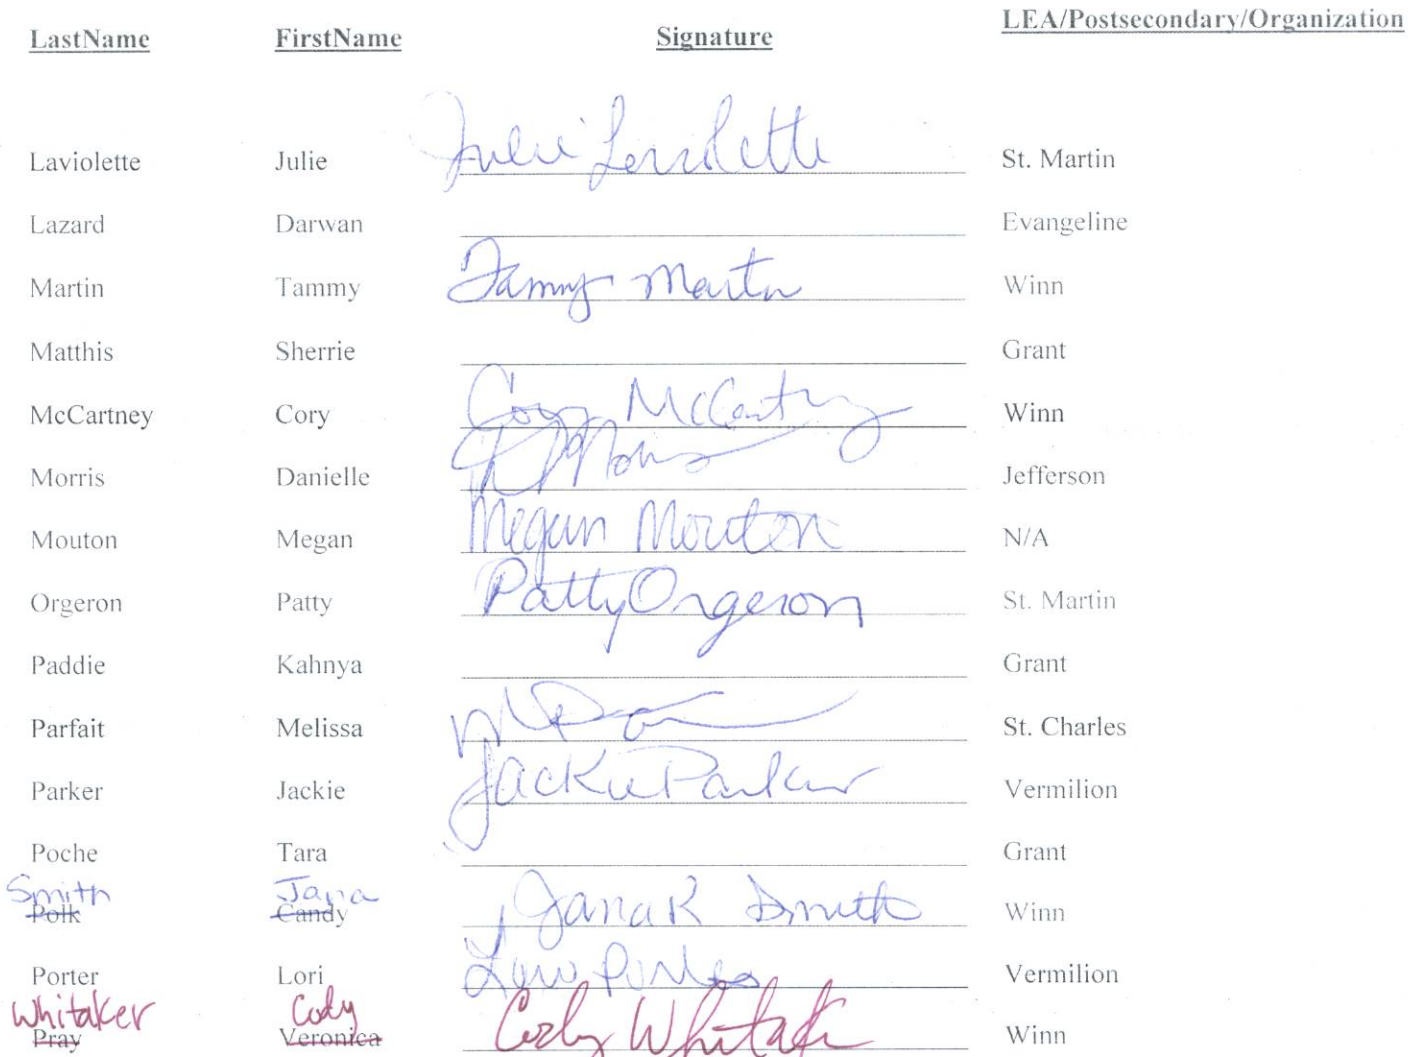 LastName FirstName Signature LEA/Postsecondary/Organization
Laviolette Julie Julie Laviolette St. Martin
Lazard Darwan Evangeline
Martin Tammy Tammy Martin Winn
Matthis Sherrie Grant
McCartney Cory Cory McCartney Winn
Morris Danielle D Morris Jefferson
Mouton Megan Megan Mouton N/A
Orgeron Patty Patty Orgeron St. Martin
Paddie Kahnya Grant
Parfait Melissa St. Charles
Parker Jackie Jackie Parker Vermilion
Poche Tara Grant
Smith Jana
Polk Candy Jana R Smith Winn
Porter Lori Lori Porter Vermilion
Whitaker Cody Cody Whitaker
Pray Veronica Winn